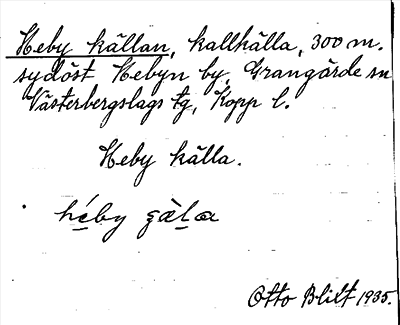 Heby källan, kallkälla, 300 m.
sydöst Hebyn by, Grangärde sn
Västerbergslags tg, Kopp l.
Heby källa.
héby
Otto Blixt 1935.